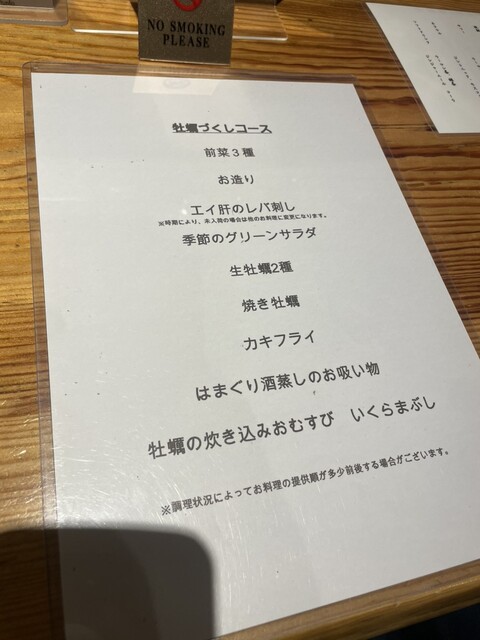 NO SMOKING
PLEASE
牡蠣づくしコース
前菜３種
お造り
エイ肝のレバ刺し
※時期により、未入荷の場合は他のお料理に変更になります。
季節のグリーンサラダ
生牡蠣2種
焼き牡蠣
カキフライ
はまぐり酒蒸しのお吸い物
牡蠣の炊き込みおむすび　いくらまぶし
※調理状況によってお料理の提供順が多少前後する場合がございます。